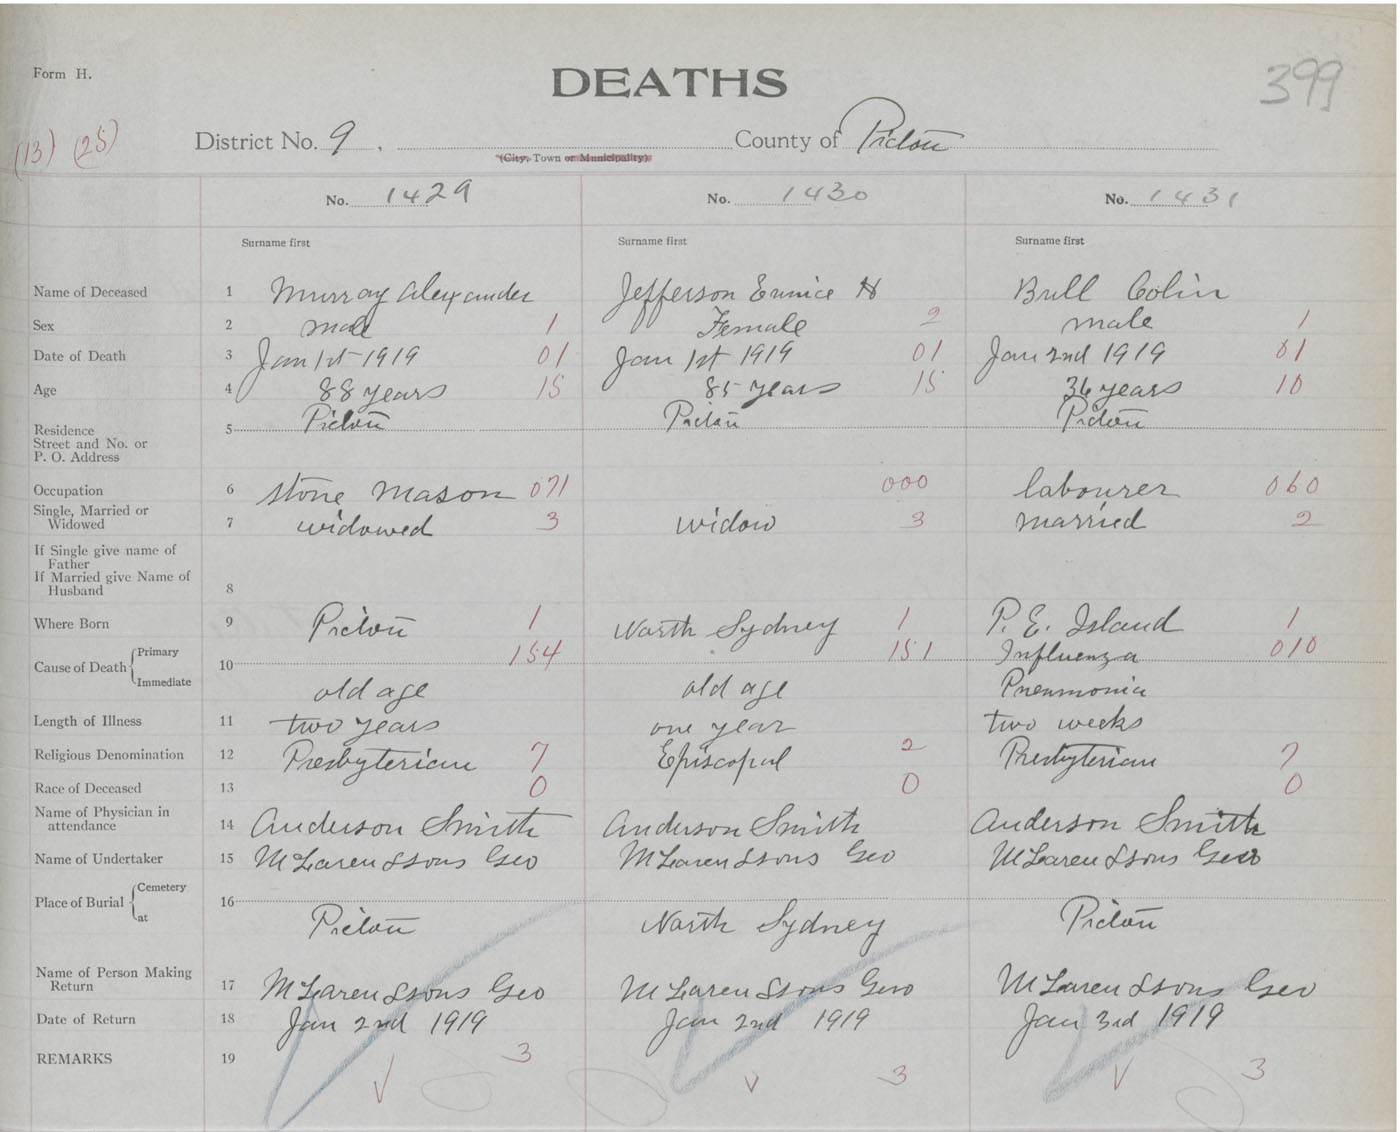 Form H.
DEATHS
399
(13) (25)
District No. 9. County of Pictou
(City, Town or Municipality)
No. 1429 No. 1430 No. 1431
Surname first Surname first Surname first
Name of Deceased 1 Murray Alexander Jefferson Eunice H Bull Colin
Sex 2 male 1 Female 2 male 1
Date of Death 3 Jan 1st 1919 01 Jan 1st 1919 01 Jan 2nd 1919 01
Age 4 88 years 15 85 years 15 36 years 10
Residence 5 Pictou Pictou Pictou
Street and No. or
P. O. Address
Occupation 6 stone mason 071 000 labourer 060
Single, Married or
Widowed 7 widowed 3 widow 3 married 2
If Single give name of
Father
If Married give Name of
Husband 8
Where Born 9 Pictou 1 North Sydney 1 P. E. Island 1
Cause of Death Primary 10 154 151 Influenza 010
Immediate old age old age Pneumonia
Length of Illness 11 two years one year two weeks
Religious Denomination 12 Presbyterian 7 Episcopal 2 Presbyterian 7
Race of Deceased 13 0 0 0
Name of Physician in
attendance 14 Anderson Smith Anderson Smith Anderson Smith
Name of Undertaker 15 McLaren & sons Geo McLaren & sons Geo McLaren & sons Geo
Place of Burial Cemetery 16
at Pictou North Sydney Pictou
Name of Person Making
Return 17 McLaren & sons Geo McLaren & sons Geo McLaren & sons Geo
Date of Return 18 Jan 2nd 1919 Jan 2nd 1919 Jan 3rd 1919
REMARKS 19 3 3 3